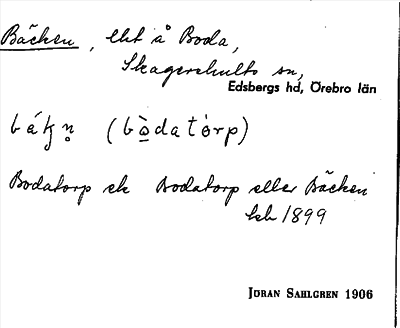 Bäcken, lht å Boda,
Skagershults sn,
Edsbergs hd, Örebro län
(bòdatórp)
Bodatorp ek Bodatorp eller Bäcken
hsb 1899
JÖRAN SAHLGREN 1906